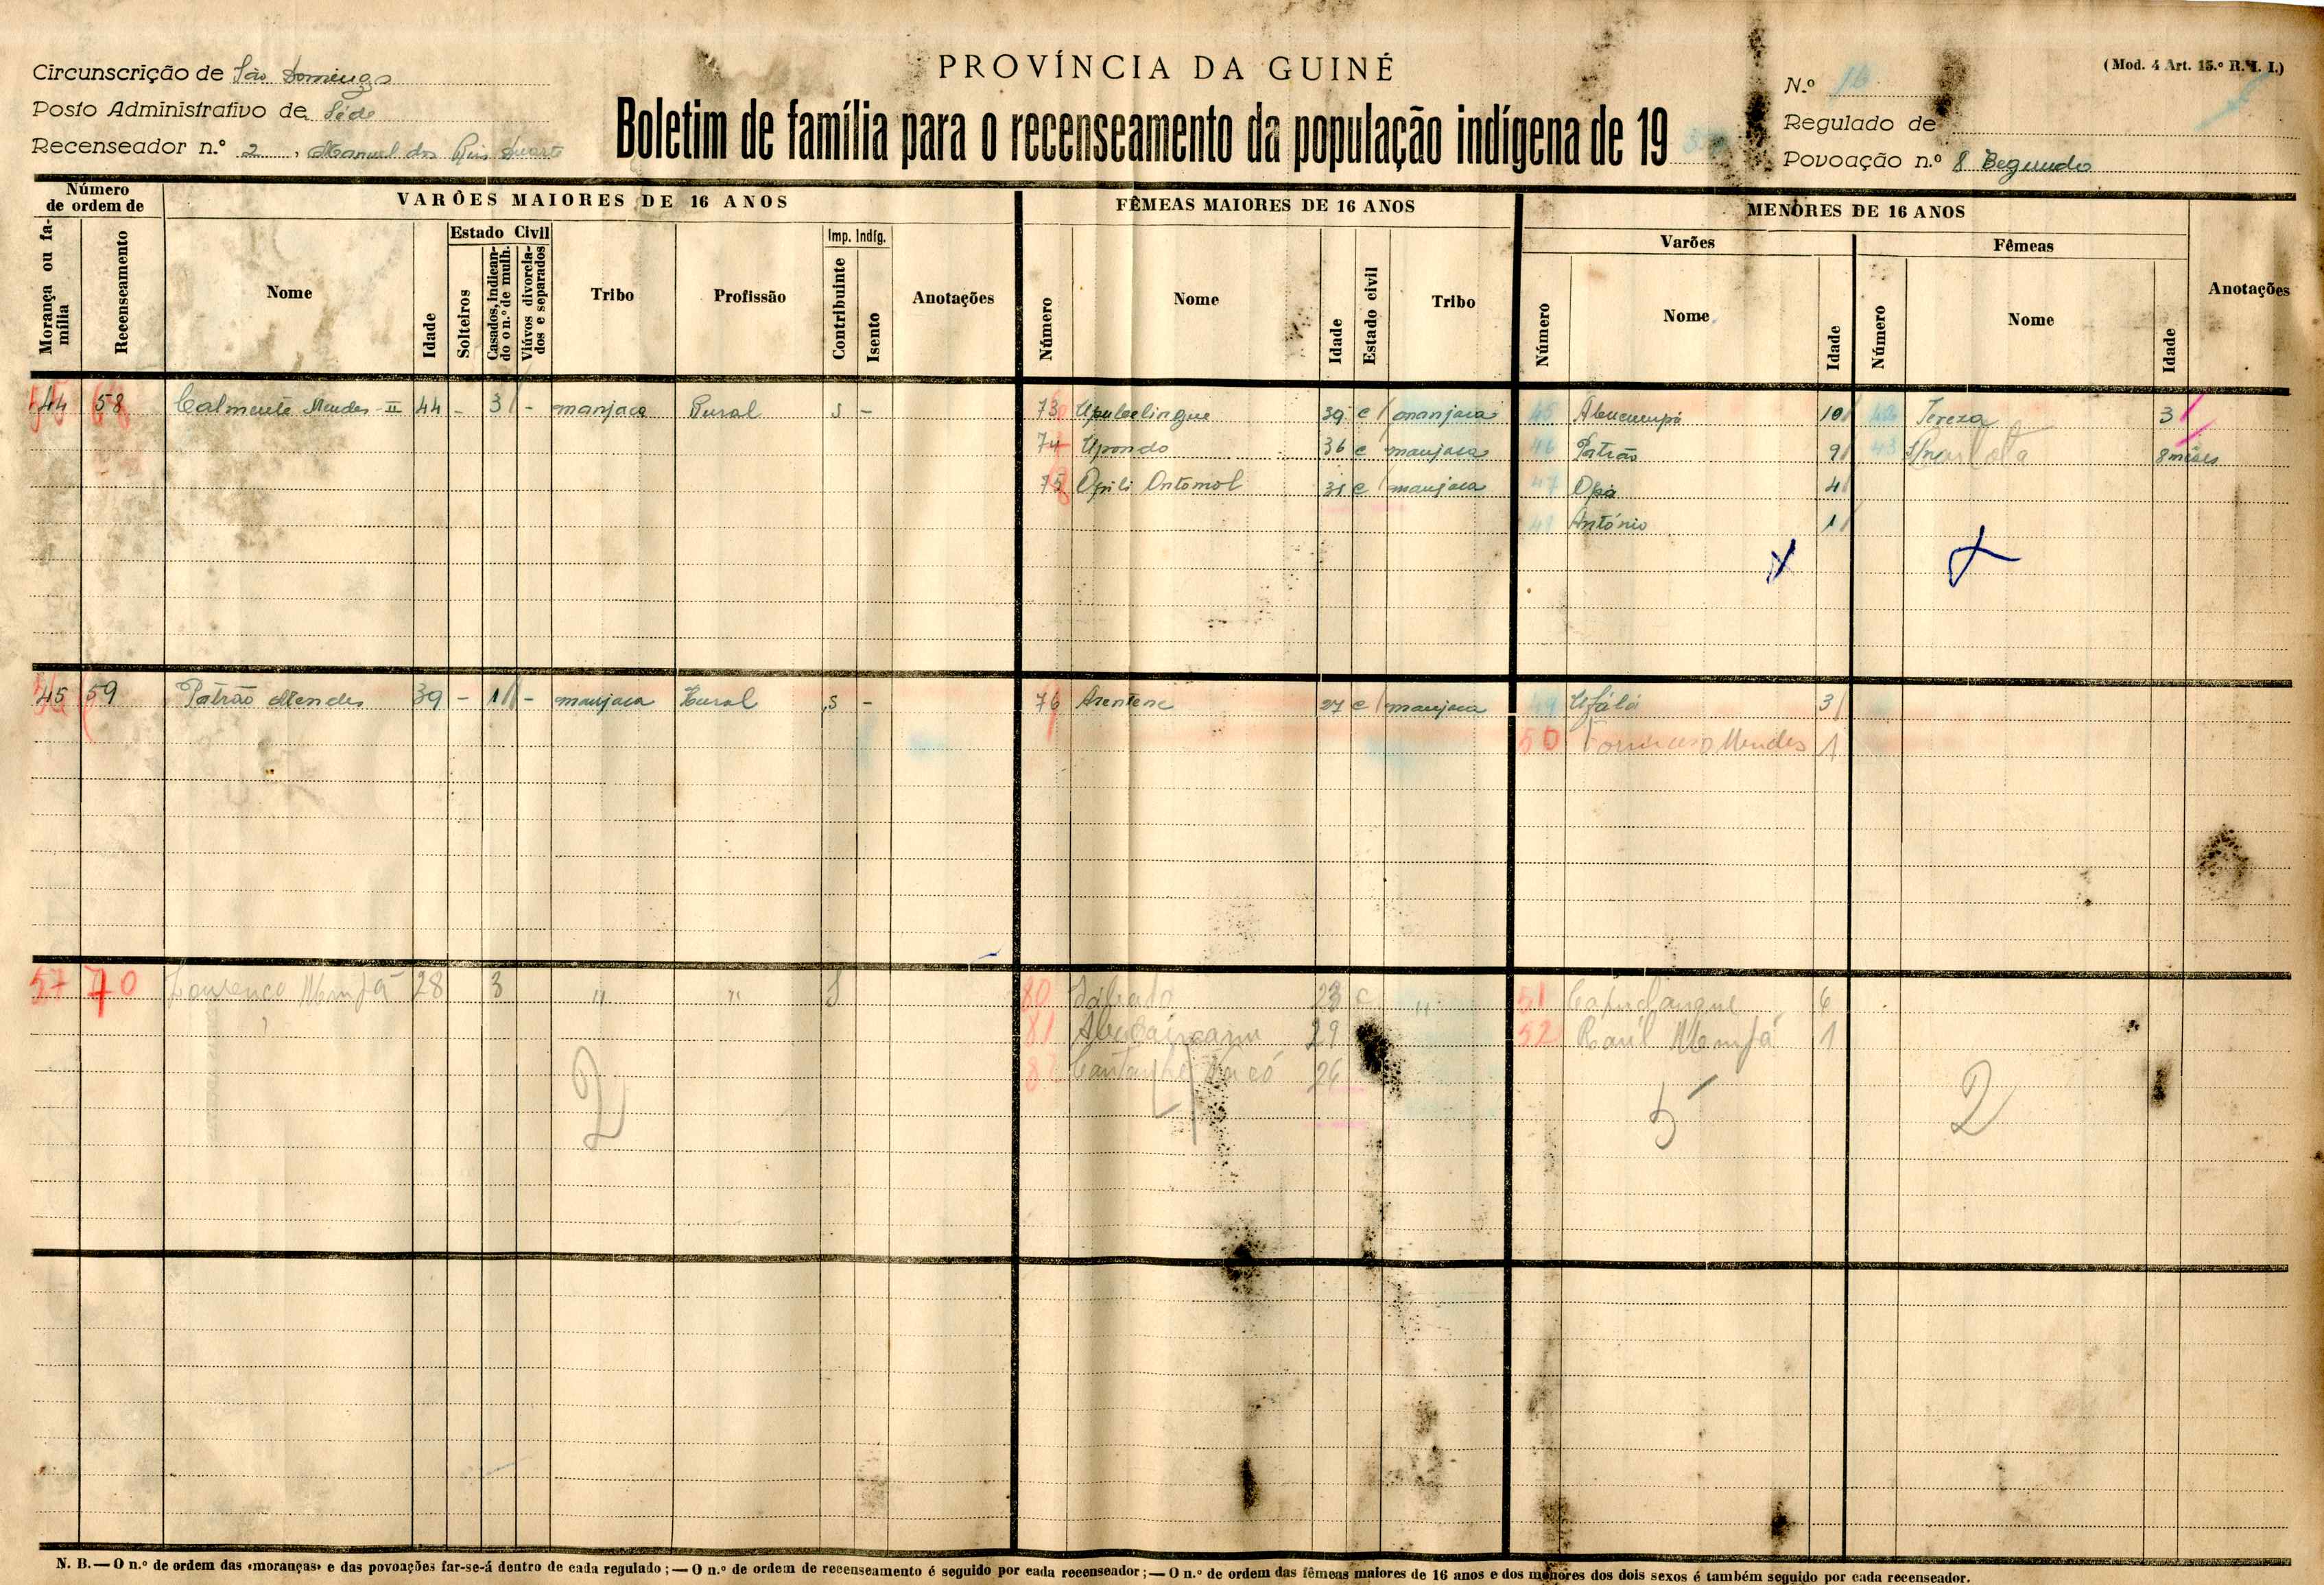 PROVÍNCIA DA GUINÉ
(Mod. 4 Art. 15.º R. I. I.)
Circunscrição de São Domingos
Posto Administrativo de Séde
Recenseador n.º 2, Manuel dos Reis Duarte
Boletim de família para o recenseamento da população indígena de 19
N.º 16
Regulado de
Povoação n.º 8 Begunde
Número de ordem de
VARÕES MAIORES DE 16 ANOS
FÊMEAS MAIORES DE 16 ANOS
MENORES DE 16 ANOS
Morança ou família
Recenseamento
Nome
Idade
Estado Civil
Solteiros
Casados, indicando o n.º de mulh.
Viúvos divorciados e separados
Tribo
Profissão
Imp. Indíg.
Contribuinte
Isento
Anotações
Número
Nome
Idade
Estado civil
Tribo
Varões
Número
Nome
Idade
Fêmeas
Número
Nome
Idade
Anotações
44 58 Calmente Mendes - II 44 - 3 - manjaca Rural s - 73 39 c manjaca 45 10 42 Tereza 3
74 Upondo 36 c manjaca 46 Patrão 9 43 8 mêses
75 31 c manjaca 47 Opá 4
48 António 1
45 59 Patrão Mendes 39 - 1 - manjaca Rural s - 76 Arentene 27 c manjaca 49 Ufálá 3
50 Mendes 1
57 70 Lourenço 28 3 " " S 80 Sábado 23 c " 51 6
81 29 52 Raúl 1
26
2 5 2
N. B. — O n.º de ordem das «moranças» e das povoações far-se-á dentro de cada regulado; — O n.º de ordem de recenseamento é seguido por cada recenseador; — O n.º de ordem das fêmeas maiores de 16 anos e dos menores dos dois sexos é também seguido por cada recenseador.